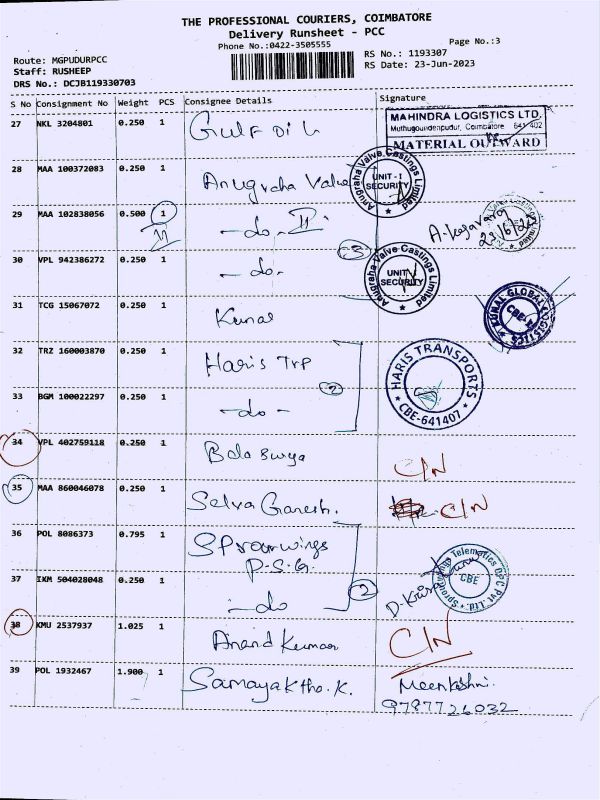 THE PROFESSIONAL COURIERS, COIMBATORE
Delivery Runsheet - PCC
Phone No.:0422-3505555
Page No.:3
Route: MGPUDURPCC
Staff: RUSHEEP
DRS No.: DCJB119330703
RS No.: 1193307
RS Date: 23-Jun-2023
S No Consignment No Weight PCS Consignee Details Signature
27 NKL 3204801 0.250 1 Gulf Oil
MAHINDRA LOGISTICS LTD.
Muthugoundenpudur, Coimbatore 641 402
MATERIAL OUTWARD
28 MAA 100372083 0.250 1 Anugraha Valve
Anugraha Valve Castings Limited
UNIT - I
SECURITY
29 MAA 102838056 0.500 1 -do- II
23/6/23
30 VPL 942386272 0.250 1 -do-
3
Anugraha Valve Castings Limited
UNIT
SECURITY
31 TCG 15067072 0.250 1 Kunal
KUNAL GLOBAL LOGISTICS
CBE
32 TRZ 160003870 0.250 1 Haris Trp
2
HARIS TRANSPORTS
CBE-641407
33 BGM 100022297 0.250 1 -do-
34 VPL 402759118 0.250 1 Bala Surya C/N
35 MAA 860046078 0.250 1 Selva Ganesh. C/N
36 POL 8086373 0.795 1
P.S.G.
Telematics OPC Pvt. Ltd.
CBE
37 IXM 504028048 0.250 1 -do
2
38 KMU 2537937 1.025 1 Anand Kumar C/N
39 POL 1932467 1.900 1 Meenkshi.
9787726032